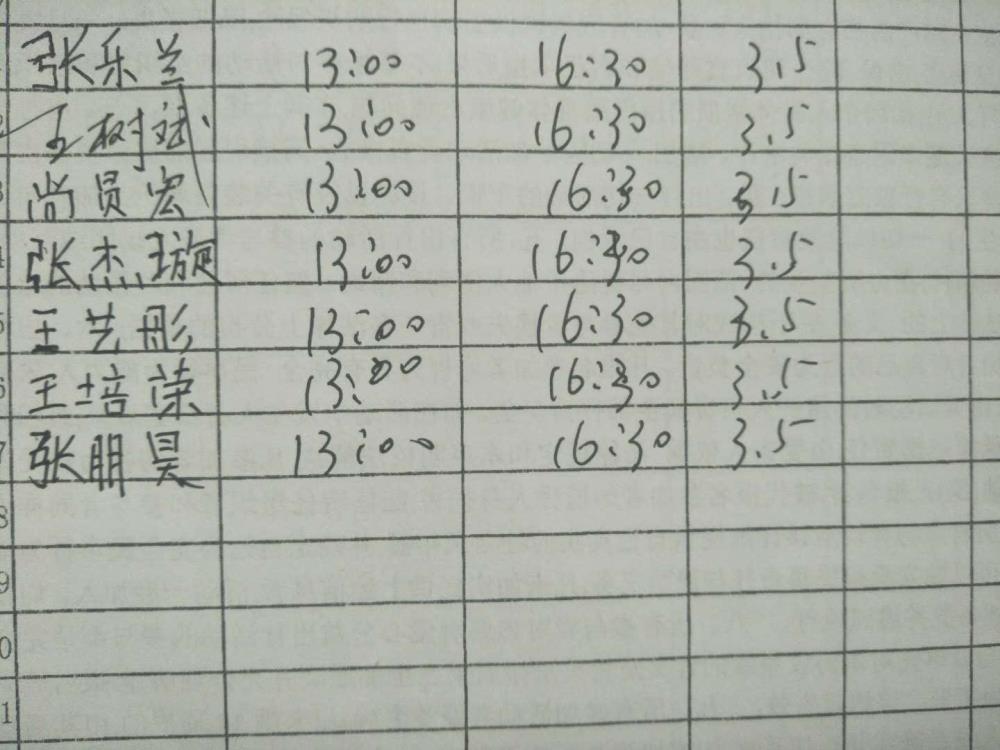 张乐兰 13:00 16:30 3.5
2 王树斌 13:00 16:30 3.5
3 尚员宏 13:00 16:30 3.5
4 张杰璇 13:00 16:30 3.5
5 王艺彤 13:00 16:30 3.5
6 王培荣 13:00 16:30 3.5
7 张朋昊 13:00 16:30 3.5
8
9
0
1